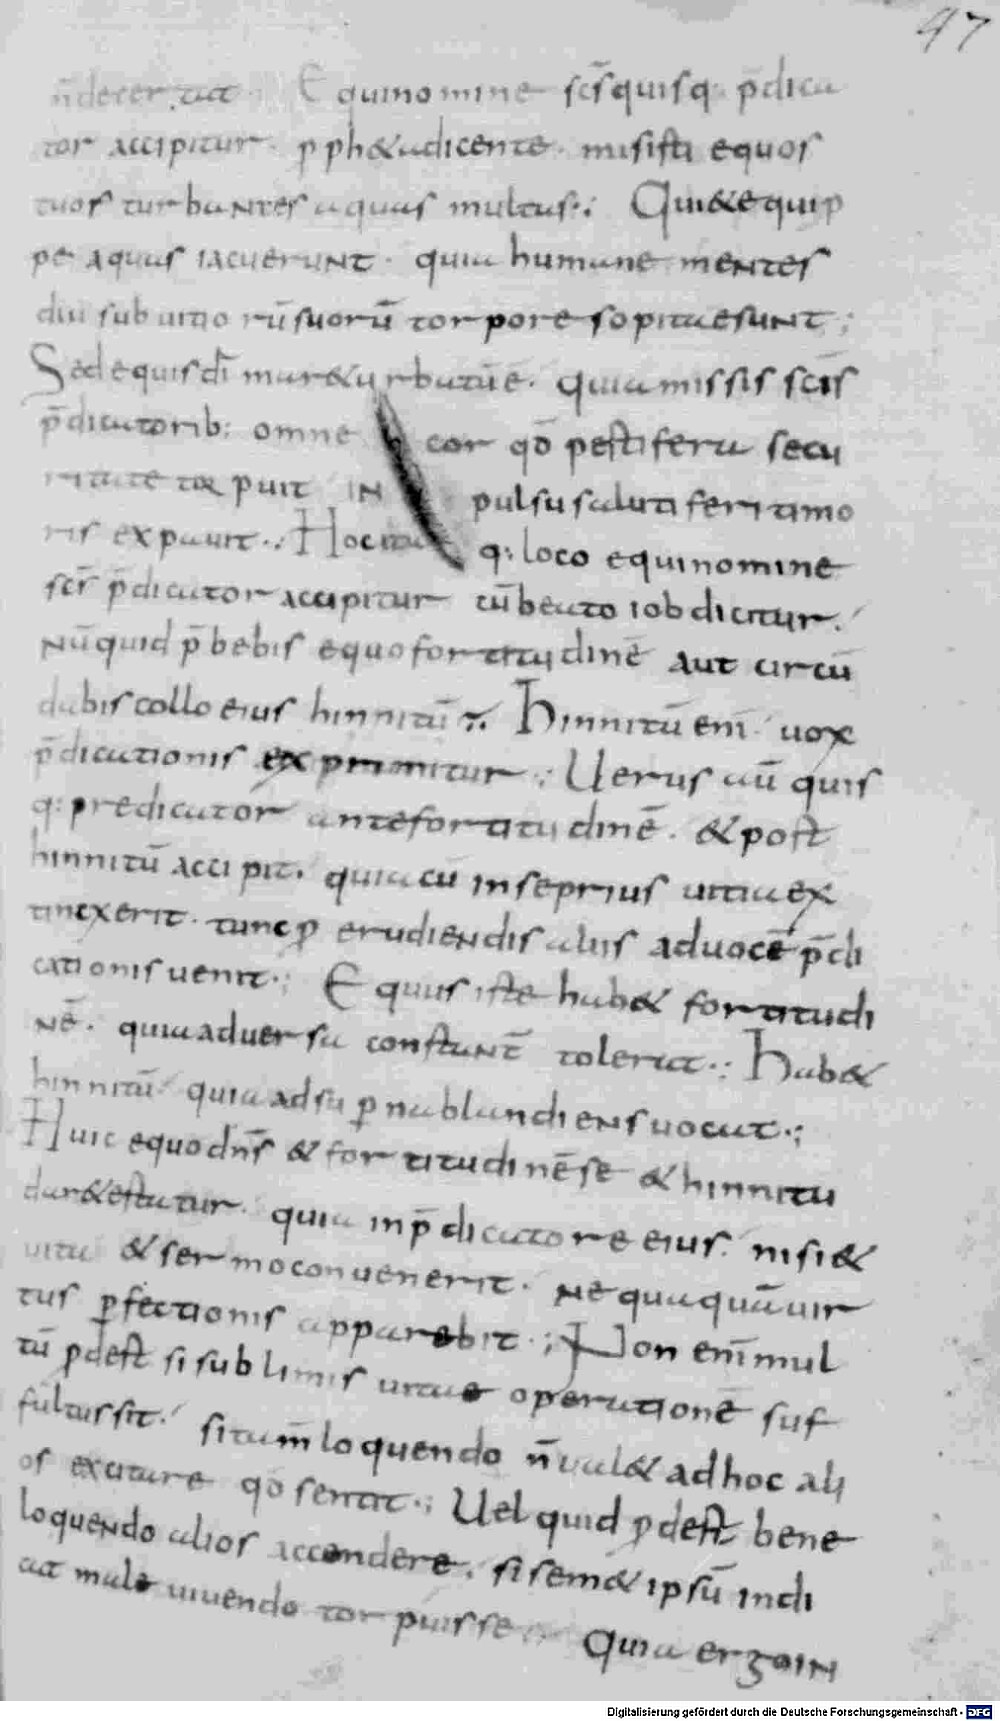 97
n̄decertat Equi nomine sc̄s quisq; p̄dica
tor accipitur · ppħ&a dicente · misisti equos
tuos turbantes aquas multas·; Qui&e quip
pe aquas iacuerunt · quia humane mentes
diu sub uitiorū suorū torpore sopitae sunt·;
Sed equis d̄i mar&urbatū ē · quia missis sc̄is
p̄dicatorib: omne cor qđ pestifera secu
ritate torpuit in pulsu salutiferi timo
ris expauit·; Hoc itaq; loco equi nomine
sc̄s p̄dicator accipitur cū beato iob dicitur·
Nūquid p̄bebis equo fortitudinē aut circū
dabis collo eius hinnitū·; Hinnitū enī uox
p̄dicationis exprimitur·; Uerus aū quis
q: predicator ante fortitudinē · & post
hinnitū accipit · quia cū in se prius uitia ex
tincxerit · tunc p erudiendis aliis ad uocē p̄di
cationis uenit·; Equus iste hab& fortitudi
nē · quia aduersa constant̄ tolerat·; Hab&
hinnitū quia ad supna blandiens uocat·;
Huic equo dn̄s & fortitudinē se & hinnitū
dar&estatur · quia in p̄dicatore eius · nisi &
uita & sermo conuenerit · nequaquā uir
tus pfectionis apparebit·; Non enī mul
tū pdest si sublimis uitae operationē suf
fultus sit · si tam̄ loquendo n̄ ual& ad hoc ali
os excitare qđ sentit·; Uel quid pdest bene
loquendo alios accendere · si sem& ipsū indi
cat male uiuendo torpuisse Quia ergo in
Digitalisierung gefördert durch die Deutsche Forschungsgemeinschaft - DFG